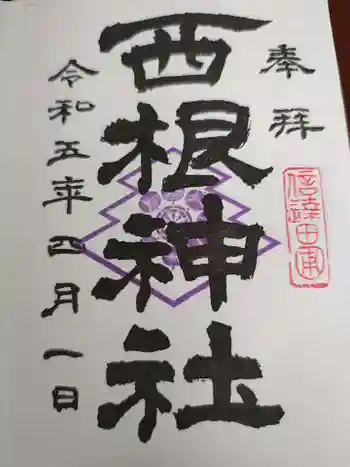 奉拝
西根神社
令和五年四月一日